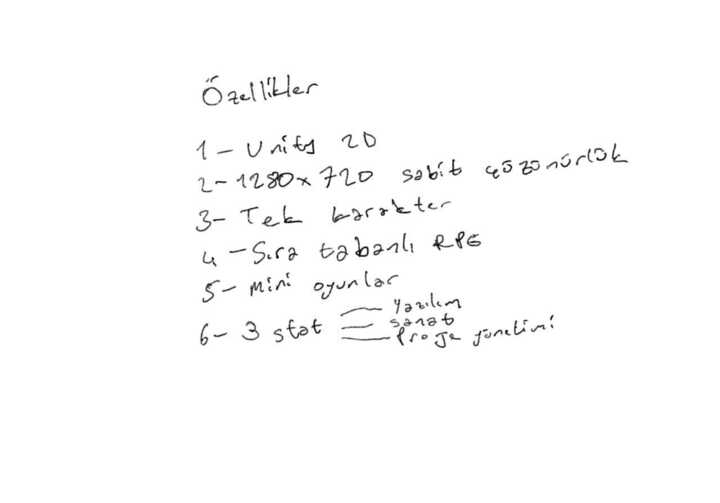 Özellikler
1- Unity 2D
2- 1280x720 sabit çözünürlük
3- Tek karakter
4- Sıra tabanlı RPG
5- Mini oyunlar
6- 3 stat
Yazılım
Sanat
Proje yönetimi